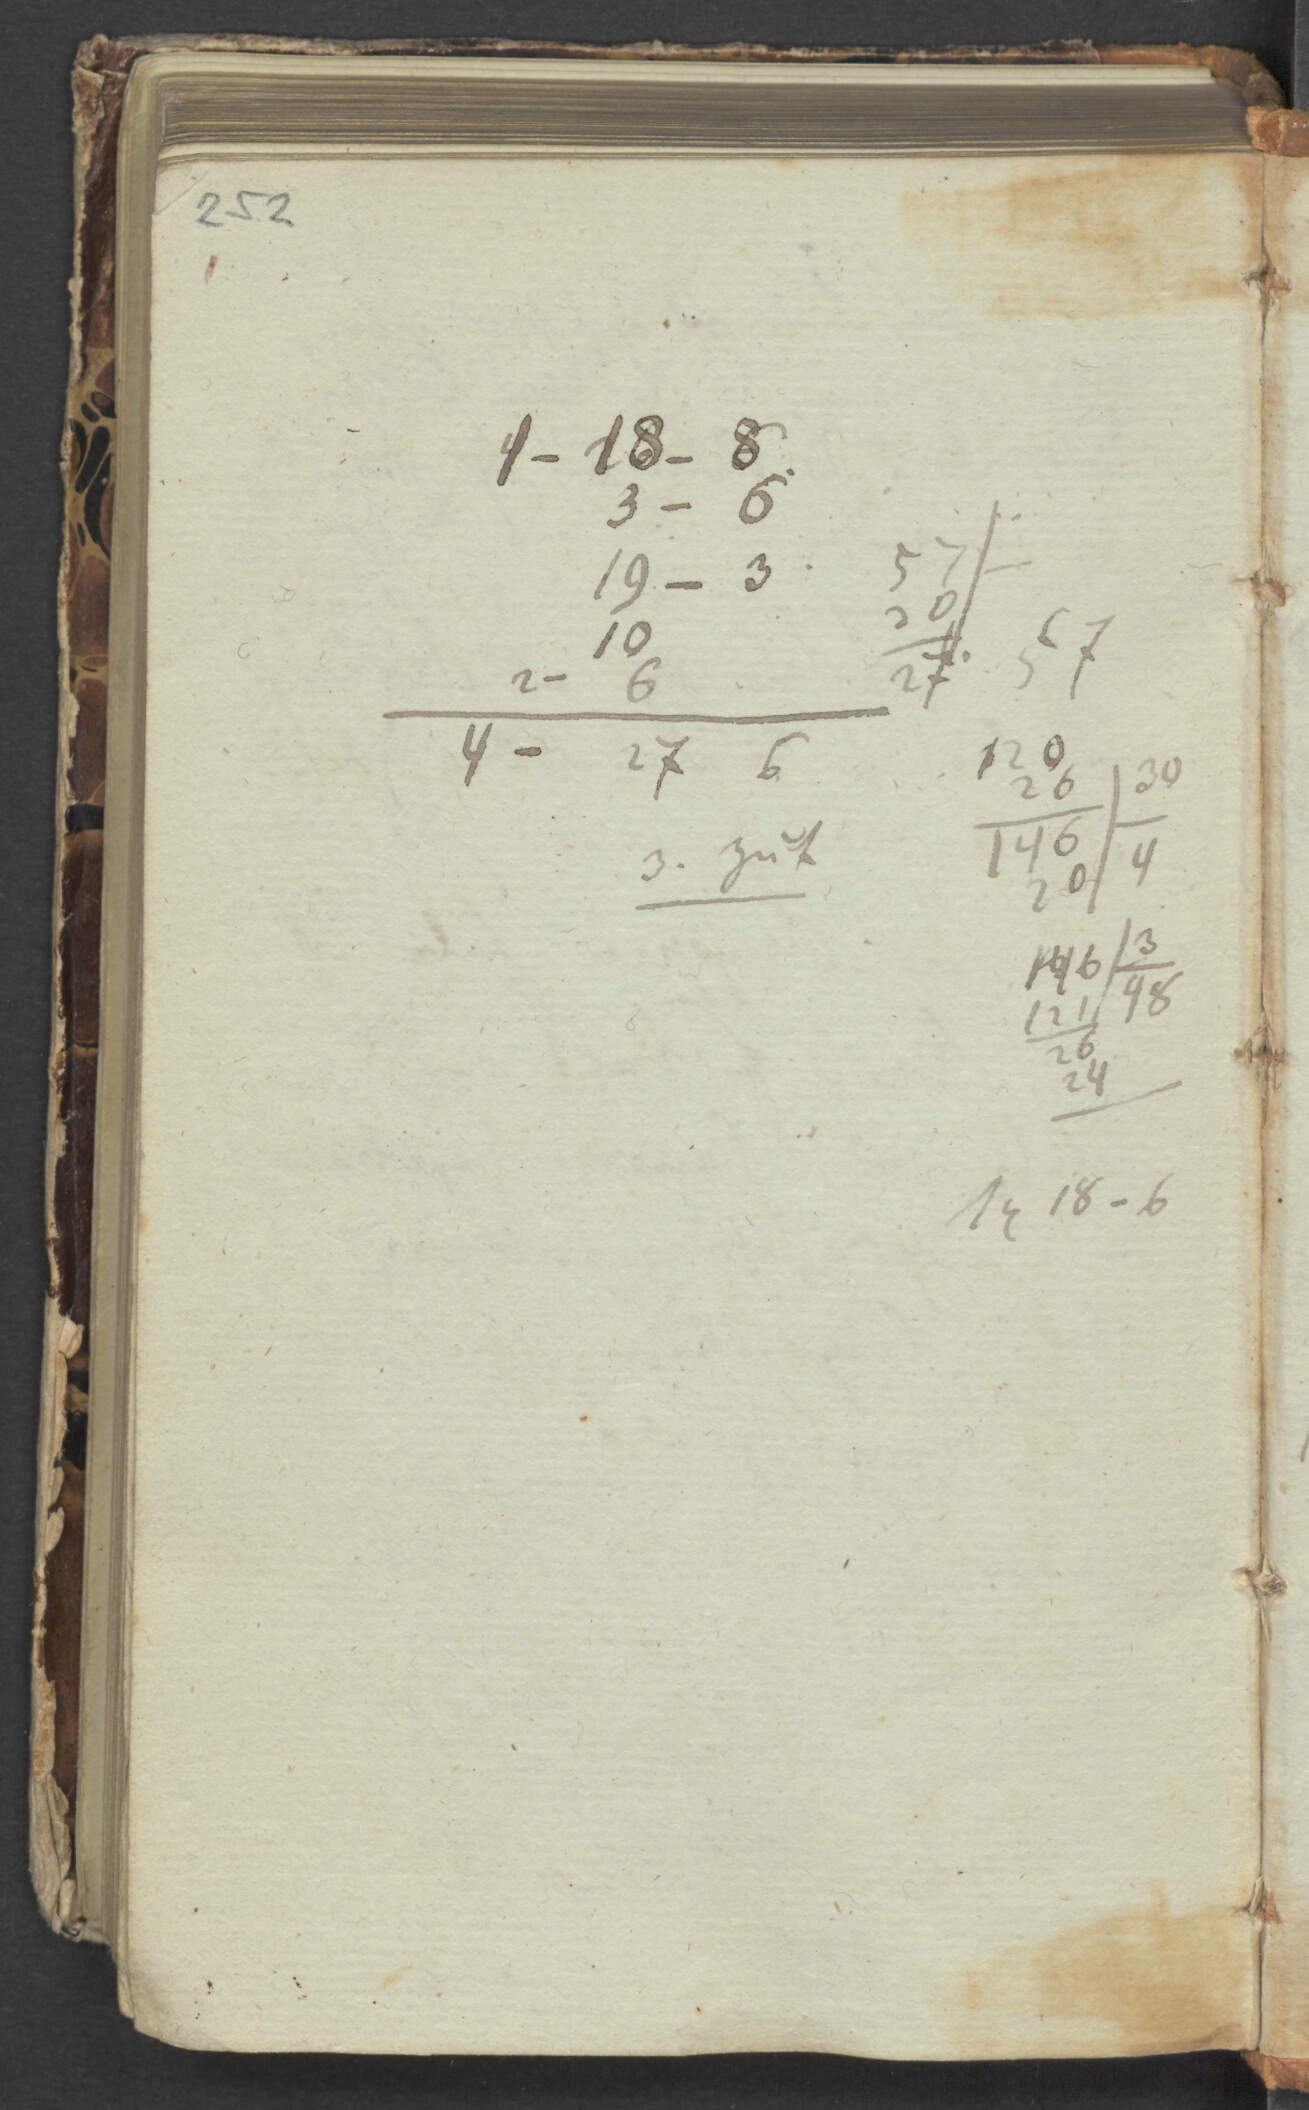 252
1 - 18 - 8
3 - 6
19 - 3
10
2 - 6
4 - 27 6
3.
57
20
27
57
120
26 | 30
146 | 4
20
146 | 3
121 | 48
26
24
18 - 6